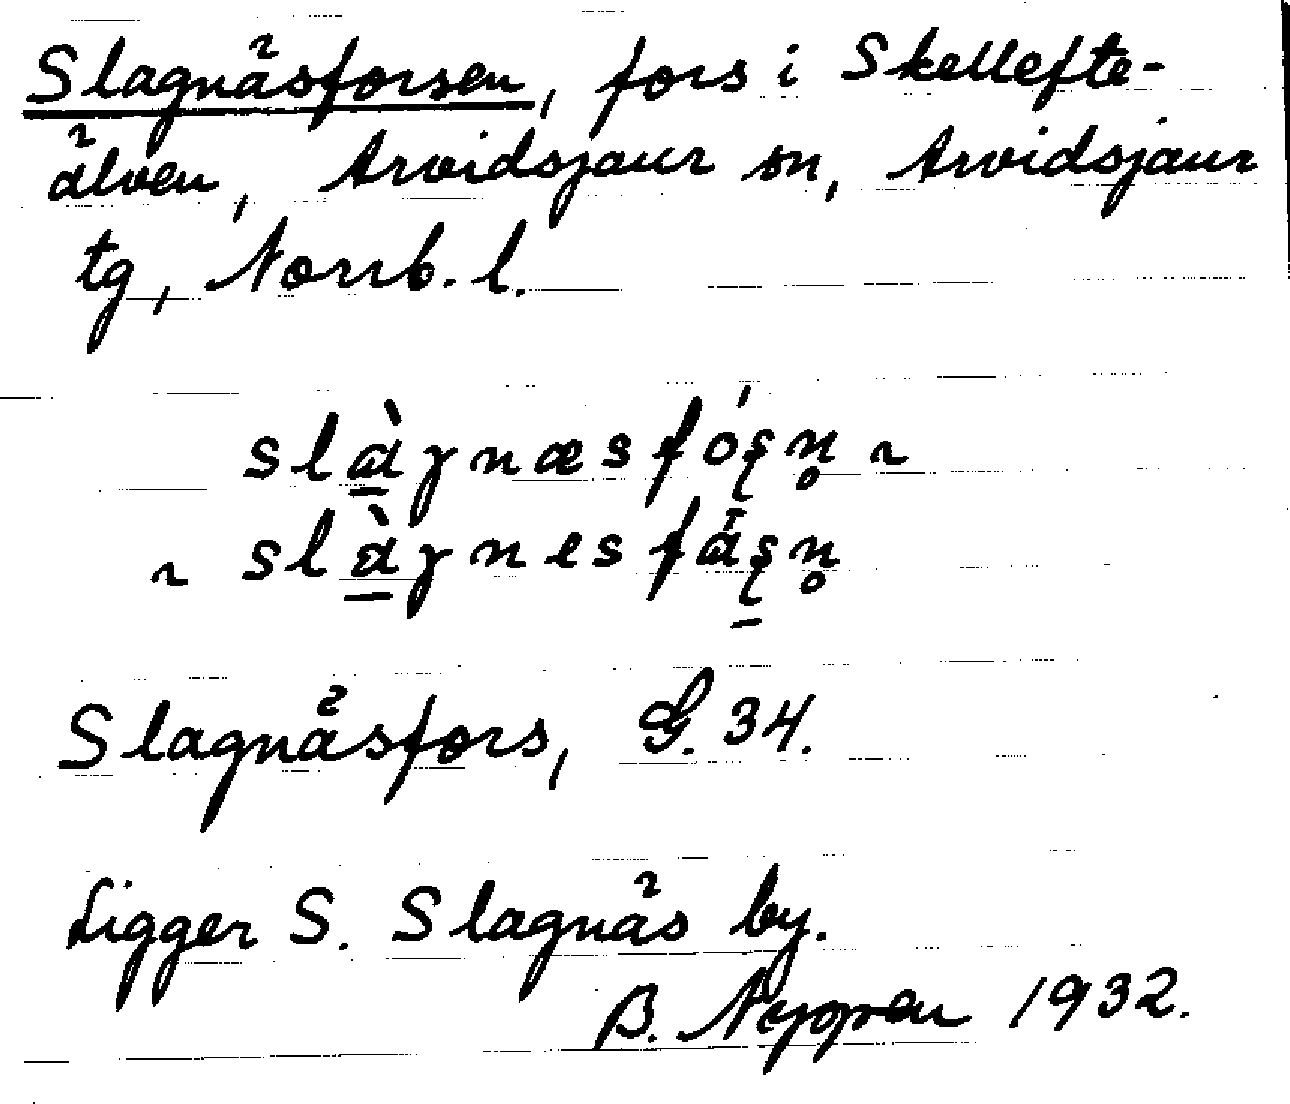 Slagnäsforsen, fors i Skellefte-
älven, Arvidsjaur sn, Arvidsjaur
tg, Norrb. l.
slàgnæsfóʂn̥ ~
~ slàgnesfáʂn̥
Slagnäsfors, G. 34.
Ligger S. Slagnäs by.
B. 1932.